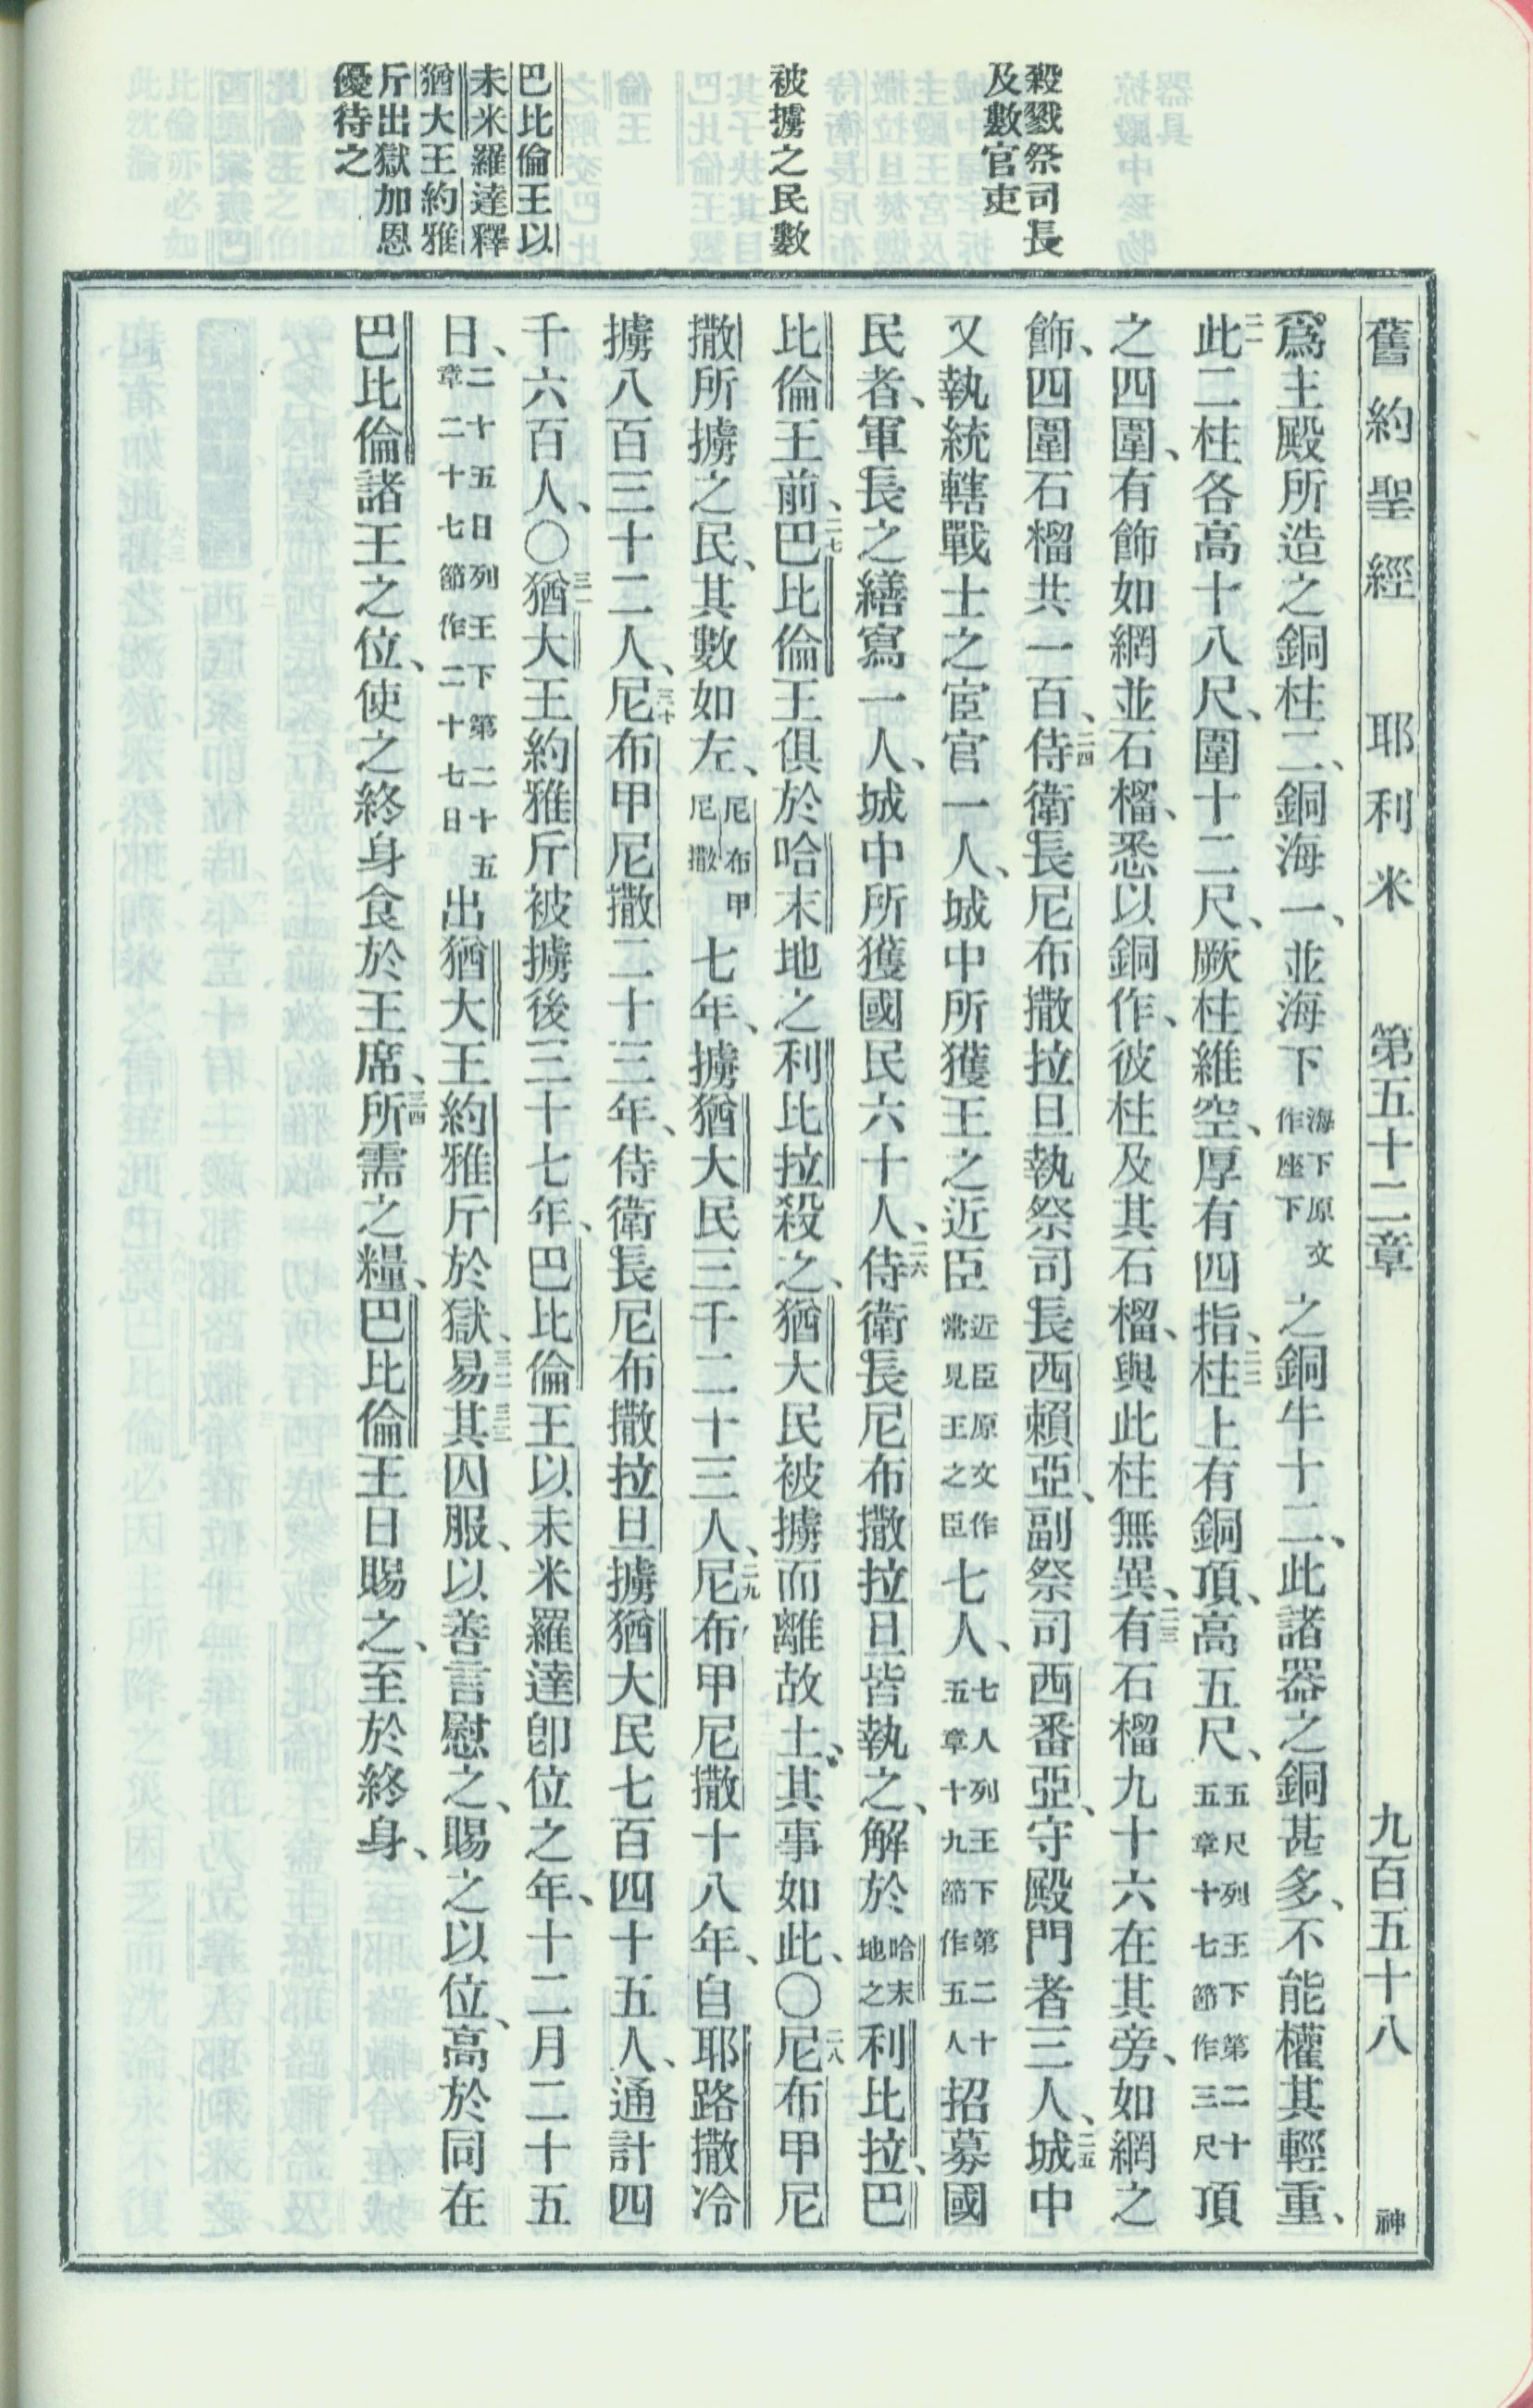 舊約聖經 耶利米 第五十二章 九百五十八 神
殺戮祭司長
及數官吏
被擄之民數
巴比倫王以
未米羅達釋
猶大王約雅
斤出獄加恩
優待之
爲主殿所造之銅柱二、銅海一、並海下海下原文作座下之銅牛十二、此諸器之銅甚多、不能權其輕重、
二一此二柱各高十八尺、圍十二尺、厥柱維空、厚有四指、二二柱上有銅頂、高五尺、五尺列王下第二十五章十七節作三尺頂
之四圍、有飾如網並石榴、悉以銅作、彼柱及其石榴、與此柱無異、二三有石榴九十六在其旁、如網之
飾、四圍石榴共一百、二四侍衛長尼布撒拉旦執祭司長西賴亞、副祭司西番亞、守殿門者三人、二五城中
又執統轄戰士之宦官一人、城中所獲王之近臣近臣原文作常見王之臣七人、七人列王下第二十五章十九節作五人招募國
民者、軍長之繕寫一人、城中所獲國民六十人、二六侍衛長尼布撒拉旦皆執之、解於哈末地之利比拉、巴
比倫王前、二七巴比倫王俱於哈末地之利比拉殺之、猶大民被擄而離故土、其事如此、〇二八尼布甲尼
撒所擄之民、其數如左、尼布甲尼撒七年、擄猶大民三千二十三人、二九尼布甲尼撒十八年、自耶路撒冷
擄八百三十二人、三十尼布甲尼撒二十三年、侍衛長尼布撒拉旦擄猶大民七百四十五人、通計四
千六百人、〇三一猶大王約雅斤被擄後三十七年、巴比倫王以未米羅達卽位之年、十二月二十五
日、二十五日列王下第二十五章二十七節作二十七日出猶大王約雅斤於獄、三二易三三其囚服、以善言慰之、賜之以位、高於同在
巴比倫諸王之位、使之終身食於王席、三四所需之糧、巴比倫王日賜之、至於終身、